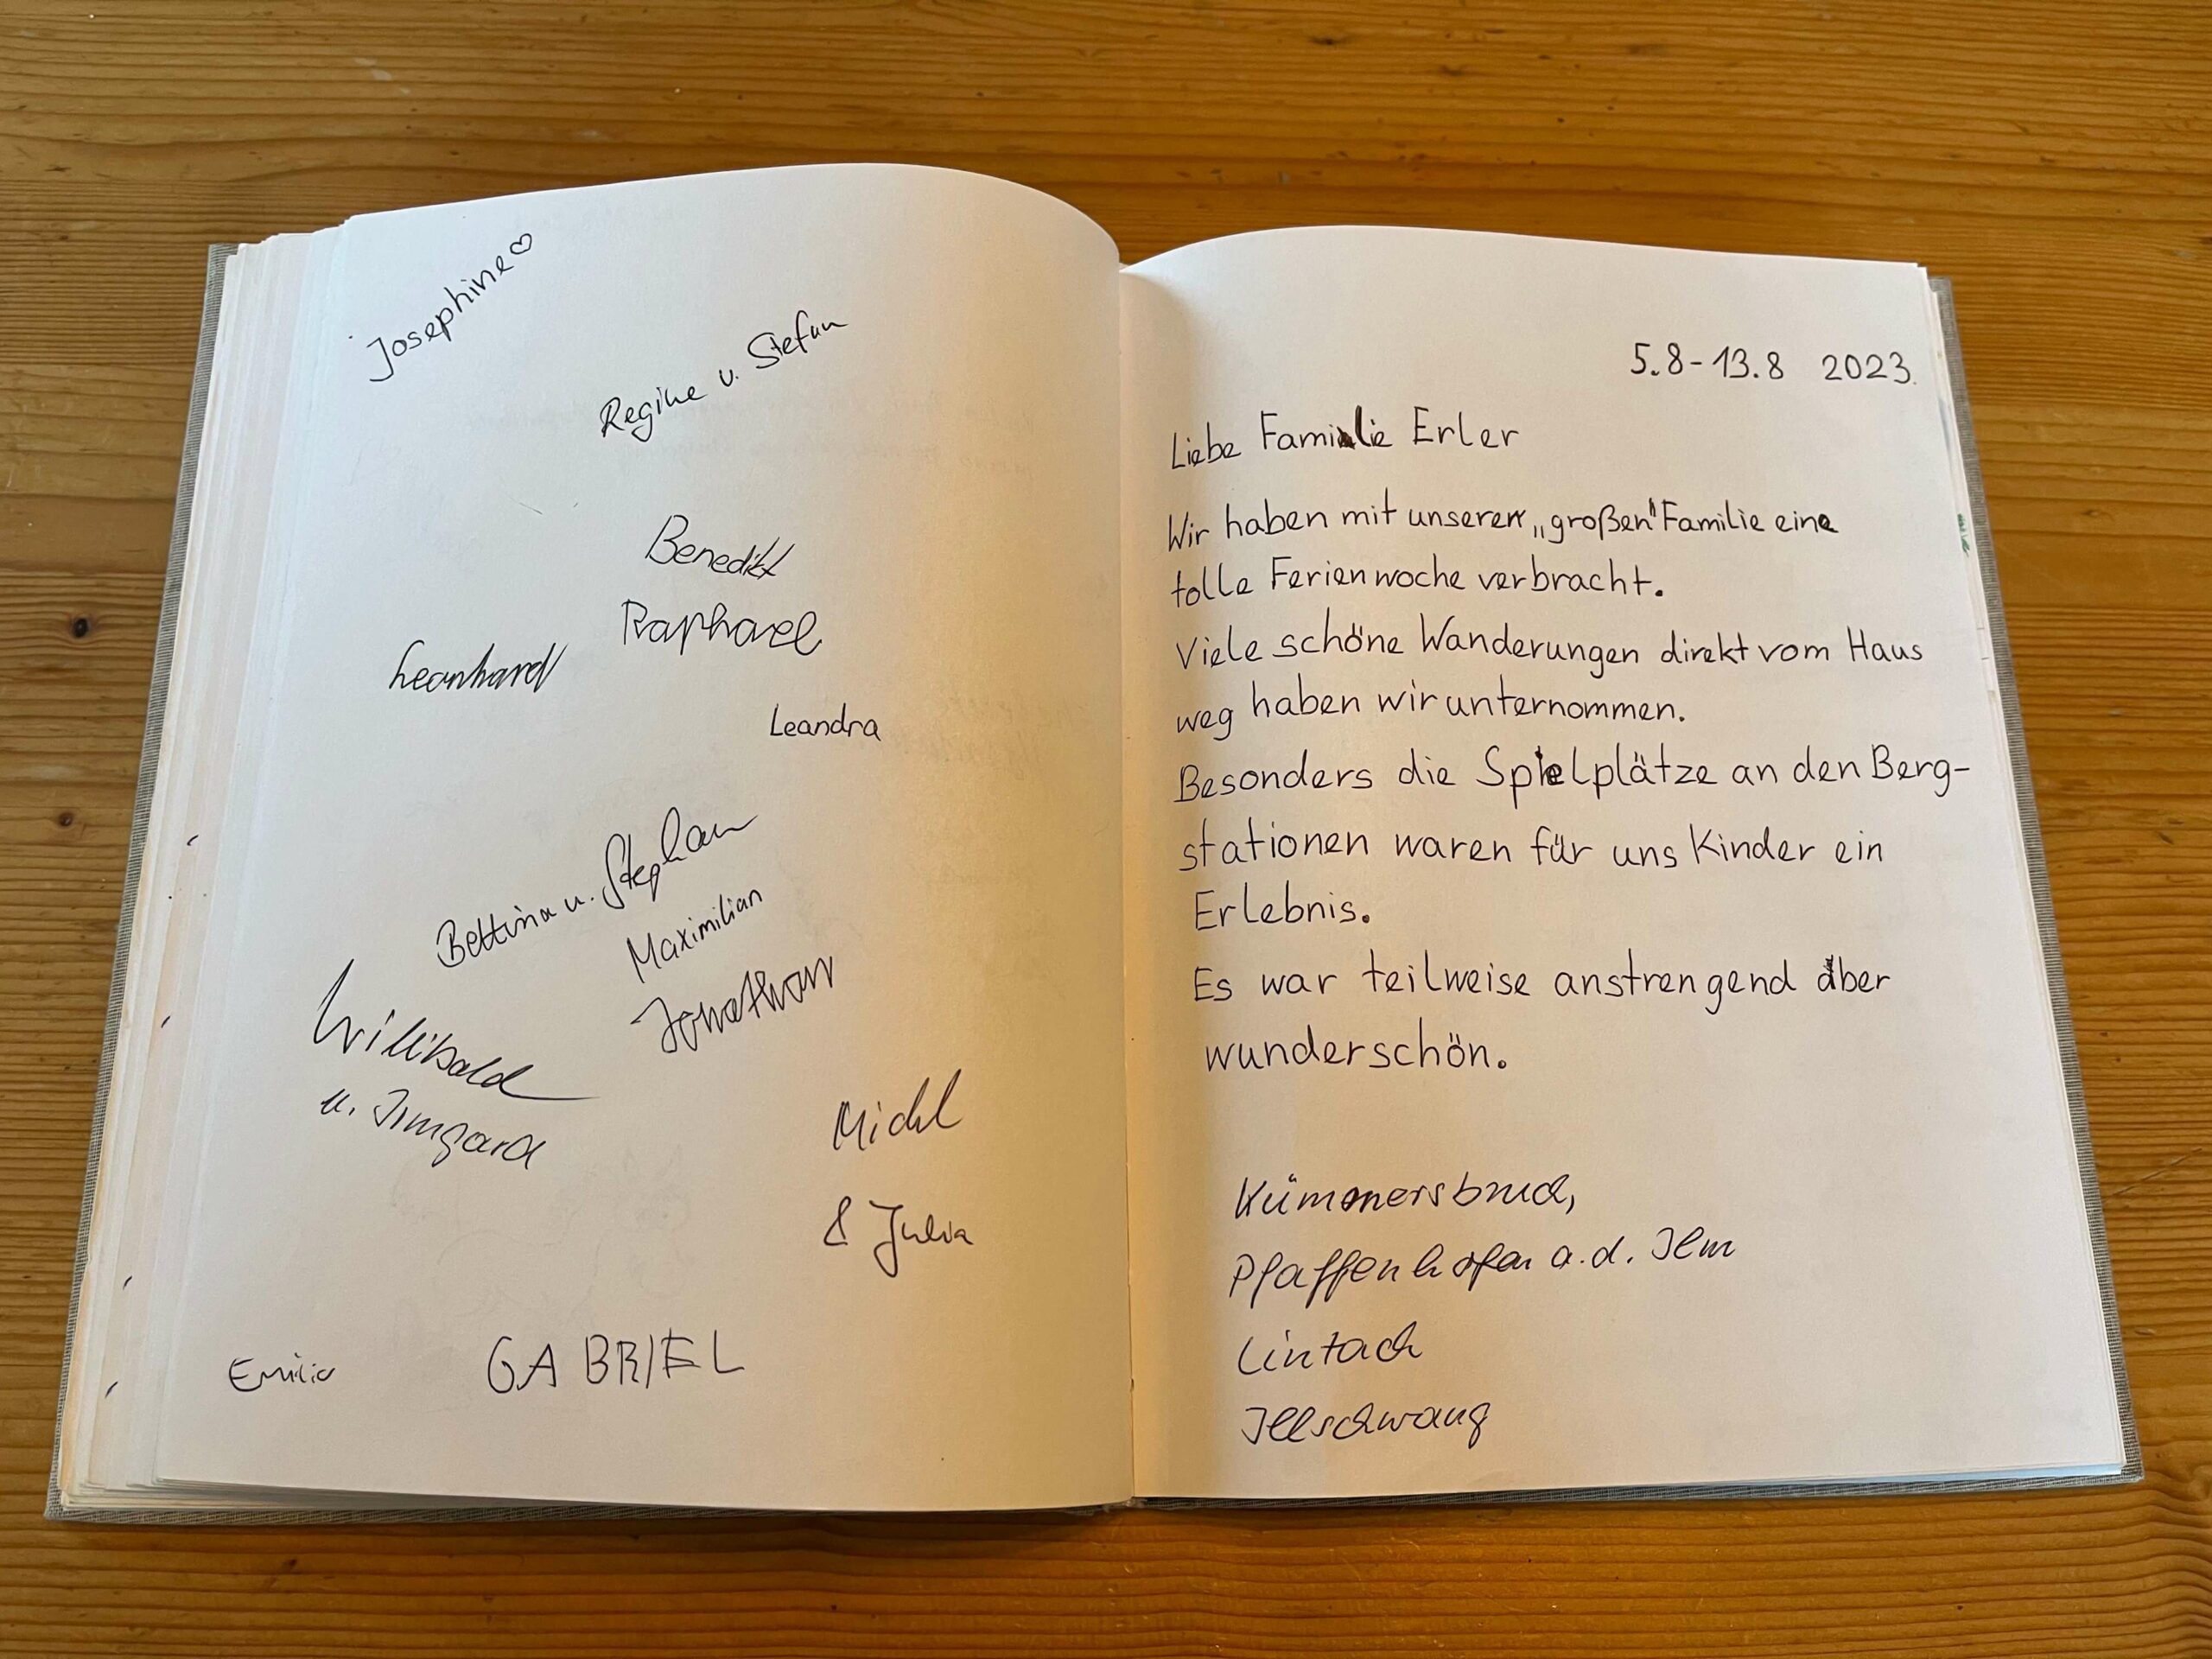 Josephine♡
Regine u. Stefan
Benedikt
Raphael
Leonhard
Leandra
Bettina u. Stephan
Maximilian
Jonathan
Willibald
u. Irmgard
Michl
& Julia
Emilia
GABRIEL
5.8-13.8 2023.
Liebe Familie Erler
Wir haben mit unserer „großen" Familie eine
tolle Ferienwoche verbracht.
Viele schöne Wanderungen direkt vom Haus
weg haben wir unternommen.
Besonders die Spielplätze an den Berg-
stationen waren für uns Kinder ein
Erlebnis.
Es war teilweise anstrengend aber
wunderschön.
Kümmersbruck,
Pfaffenhofen a.d. Ilm
Lintach
Illschwang